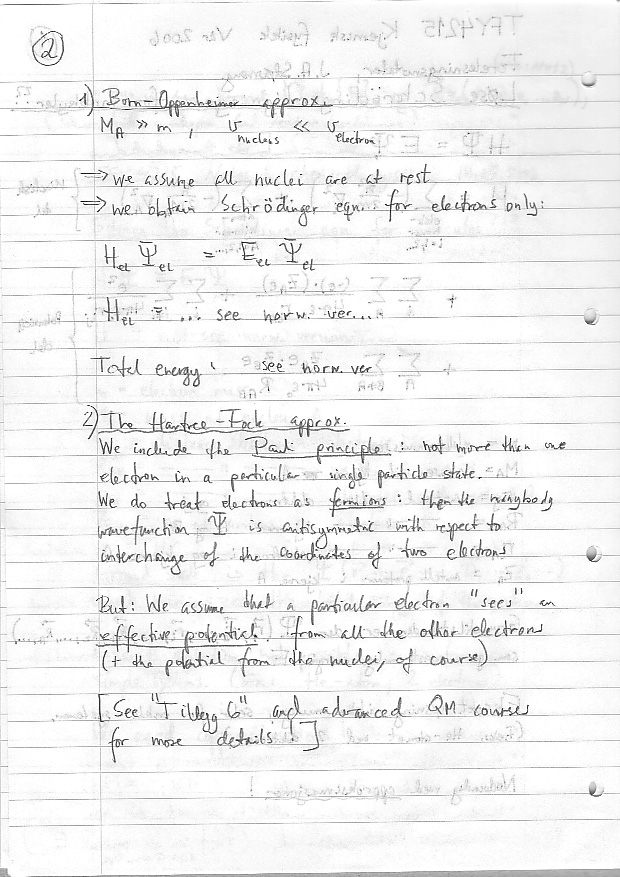 2
1) Born-Oppenheimer approx.
M_A >> m , v_nucleus << v_electron
⇒ we assume all nuclei are at rest
⇒ we obtain Schrödinger eqn. for electrons only:
H_el Ψ_el = E_el Ψ_el
H_el = ... see norw. ver...
Total energy: see norw. ver
2) The Hartree-Fock approx.
We include the Pauli principle: not more than one
electron in a particular single particle state.
We do treat electrons as fermions: then the manybody
wavefunction Ψ is antisymmetric with respect to
interchange of the coordinates of two electrons
But: We assume that a particular electron "sees" an
effective potential from all the other electrons
(+ the potential from the nuclei, of course)
[See "Tillegg 6" and advanced QM courses
for more details!]